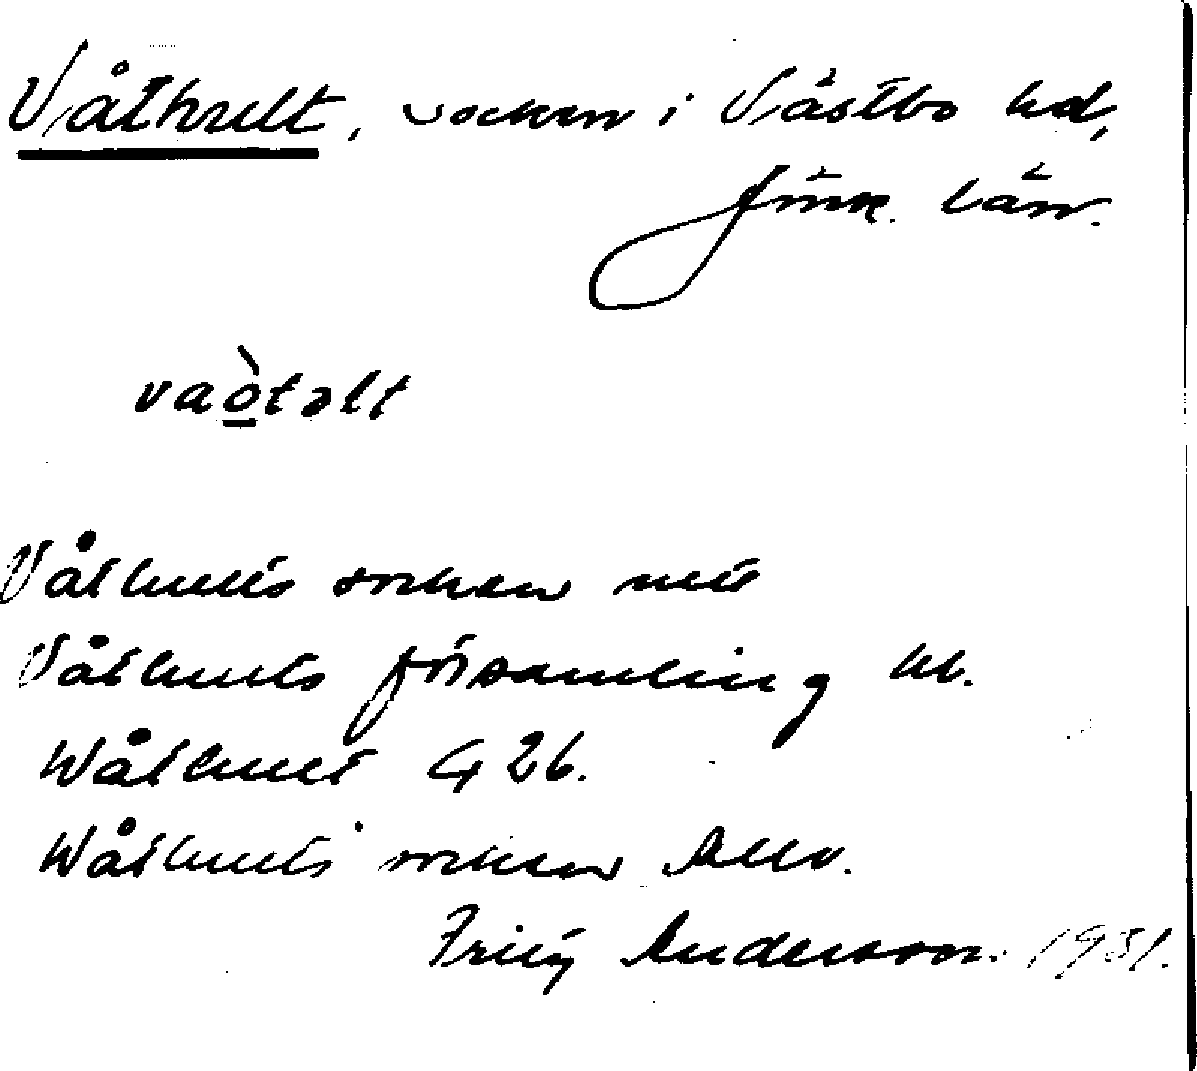 Våthult, socken i Västbo hd,
Jönk. län.
vaòtəlt
Våthults socken
Våthults församling
Wåthult G 26.
Wåthults socken
Andersson. 1931.